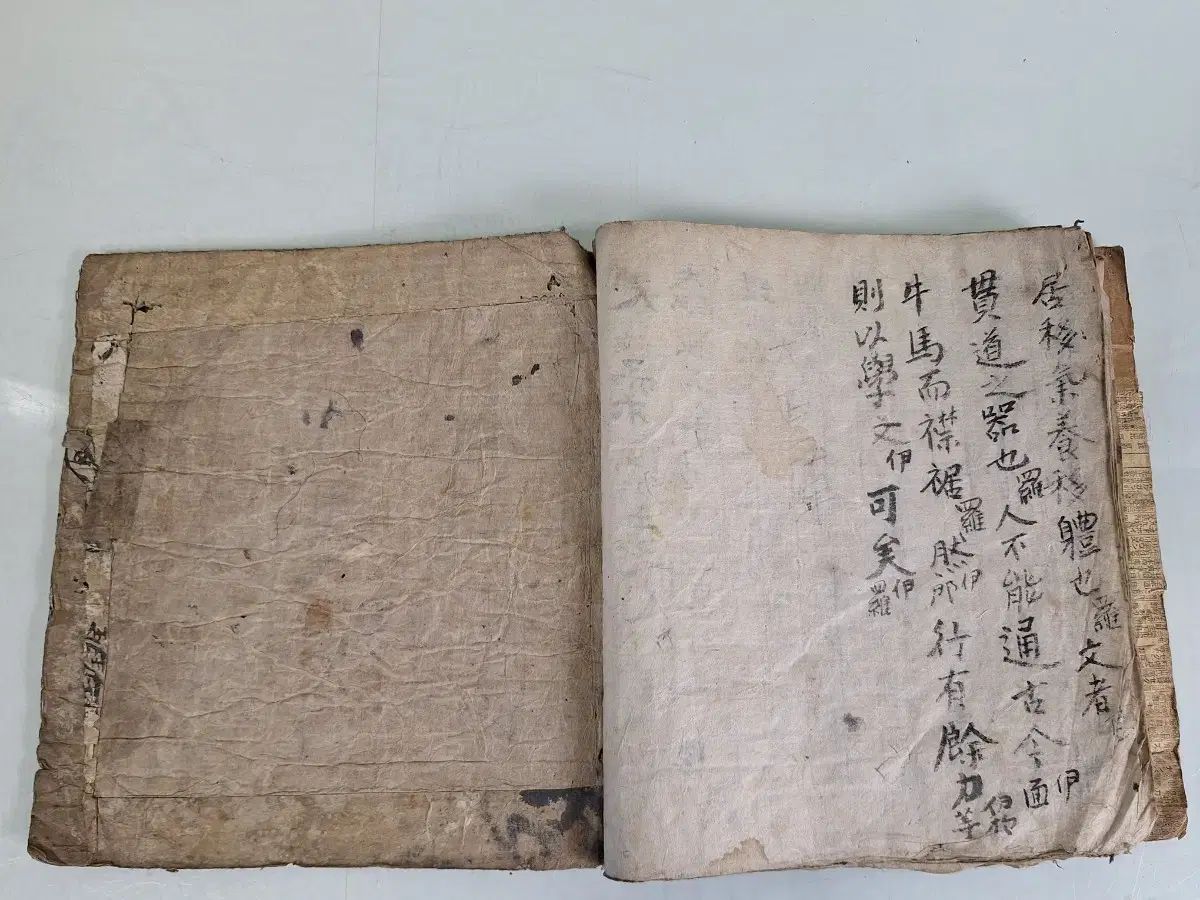 居移氣養移體也羅文者
貫道之器也羅人不能通古今伊面
牛馬而襟裾羅然伊所行有餘力
則以學文伊可矣伊羅